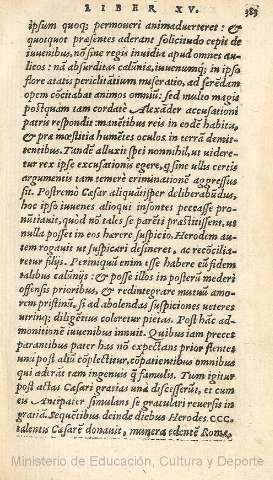 LIBER XV. 383
ipsum quoq; permoueri animaduerteret: &
quotquot præsentes aderant solicitudo cepit de
iuuenibus, nõ sine regis inuidia apud omnes au-
licos: nã absurditas calũniæ, iuuenumq; in ipso
flore ætatis periclitãtium miseratio, ad ferẽdam
opem cõcitabat animos omniũ: sed multo magis
postquam tam cordatè Alexãder accusationi
patris respondit: manẽtibus reis in eodẽ habitu,
& præ mœstitia humẽtes oculos in terrã demit-
tentibus. Tandẽ alluxit spei nonnihil, ut uidere-
tur rex ipse excusationis egere, q̃ sine ullis certis
argumentis tam temerè criminationẽ aggressus
sit. Postremò Cæsar aliquãtisper deliberabũdus,
hoc ipso iuuenes alioqui insontes peccasse pro-
nũtiauit, quòd nõ tales se parẽti præstitissent, ut
nulla posset in eos hærere suspicio. Herodem au-
tem rogauit ut suspicari desineret, ac recõcilia-
retur filijs. Periniquũ enim esse habere eũ fidem
talibus calũnijs: & posse illos in posterũ mederi
offensis prioribus, & redintegrare mutuũ amo-
rem pristinũ, si ad abolendas suspiciones ueteres
utrinq; diligẽtius coleretur pietas. Post hãc ad-
monitionẽ iuuenibus innuit. Quibus iam preces
parantibus pater has nõ expectans prior flentes
unũ post aliũ cõplectitur, cõpatientibus omnibus
qui adãrãt tam ingenuis q̃ famulis. Tum igitur
post actas Cæsari gratias unà discesserũt, et cum
eis Antipater simulans se gratulari reuersis in
gratiã. Sequẽtibus deinde diebus Herodes CCC.
talentis Cæsarẽ donauit, munera edentẽ Romæ,
Ministerio de Educación, Cultura y Deporte